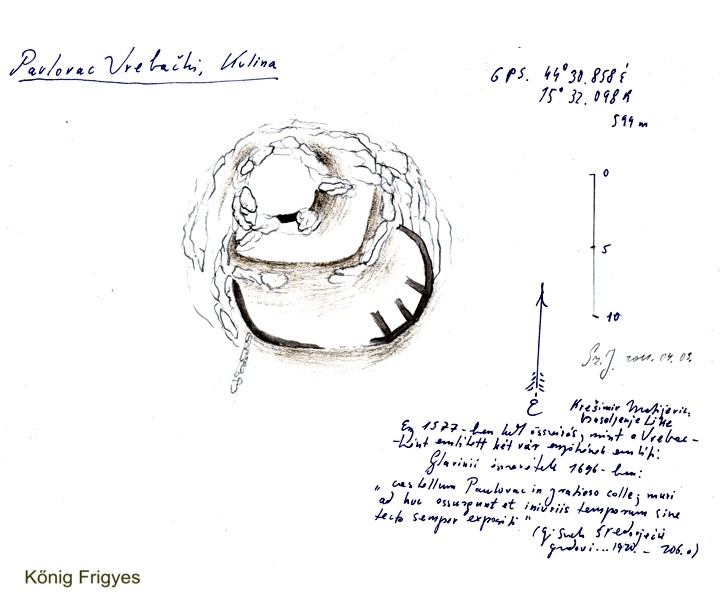 Pavlovac Vrebački, Kulina
GPS. 44° 30.858 É
15° 32.098 K
599 m
0
5
10
Sz. J. 2011.04.09.
É
Krešimir Matijević:
Naseljenje Like
Egy 1577-ben két összeírás, mint a Vrebac-
-ként említett két vár egyikének említi.
Glavinić 1696-ban:
"castellum Pavlovac in gratioso colle, muri
ad huc assurgunt et iniuriis temporum sine
tecto semper expositi"
(Gj. Szabo Sredovječni
gradovi... 1920. - 206.o)
König Frigyes